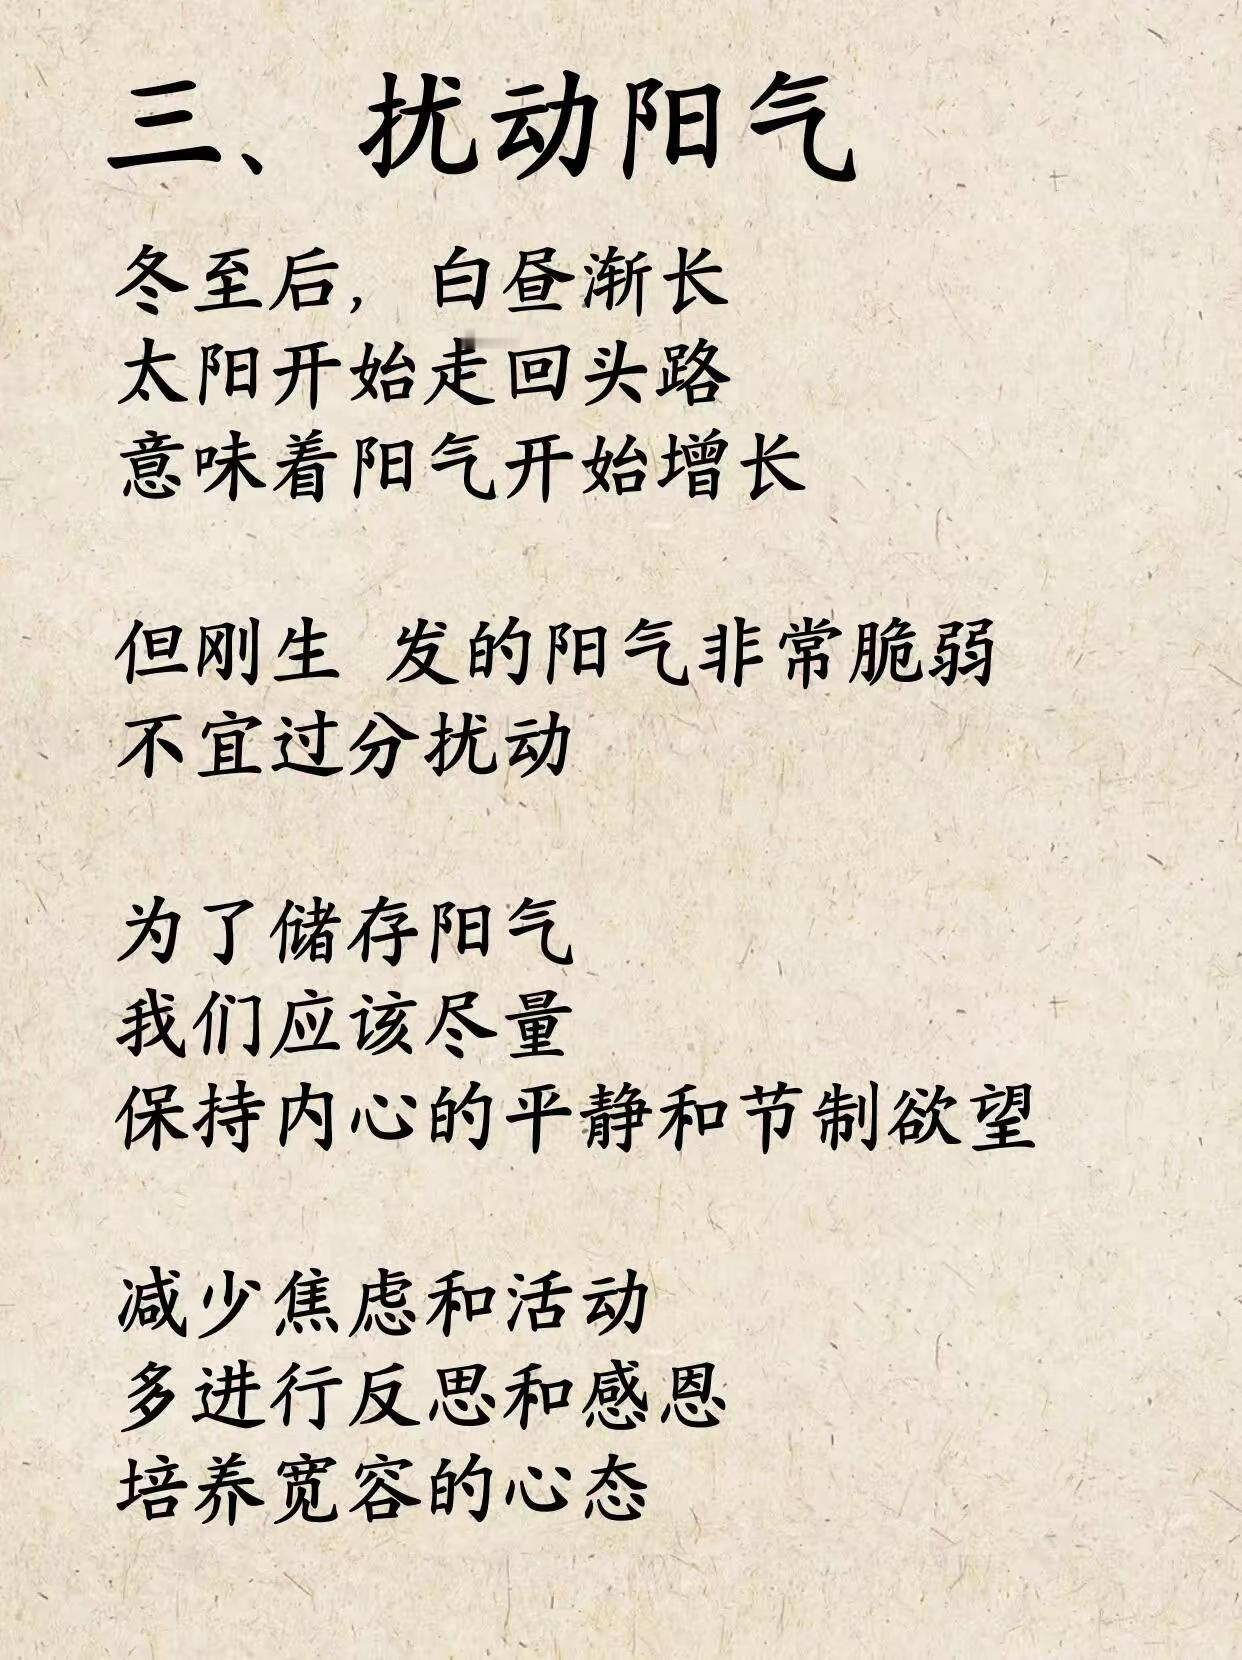 三、扰动阳气
冬至后，白昼渐长
太阳开始走回头路
意味着阳气开始增长
但刚生 发的阳气非常脆弱
不宜过分扰动
为了储存阳气
我们应该尽量
保持内心的平静和节制欲望
减少焦虑和活动
多进行反思和感恩
培养宽容的心态